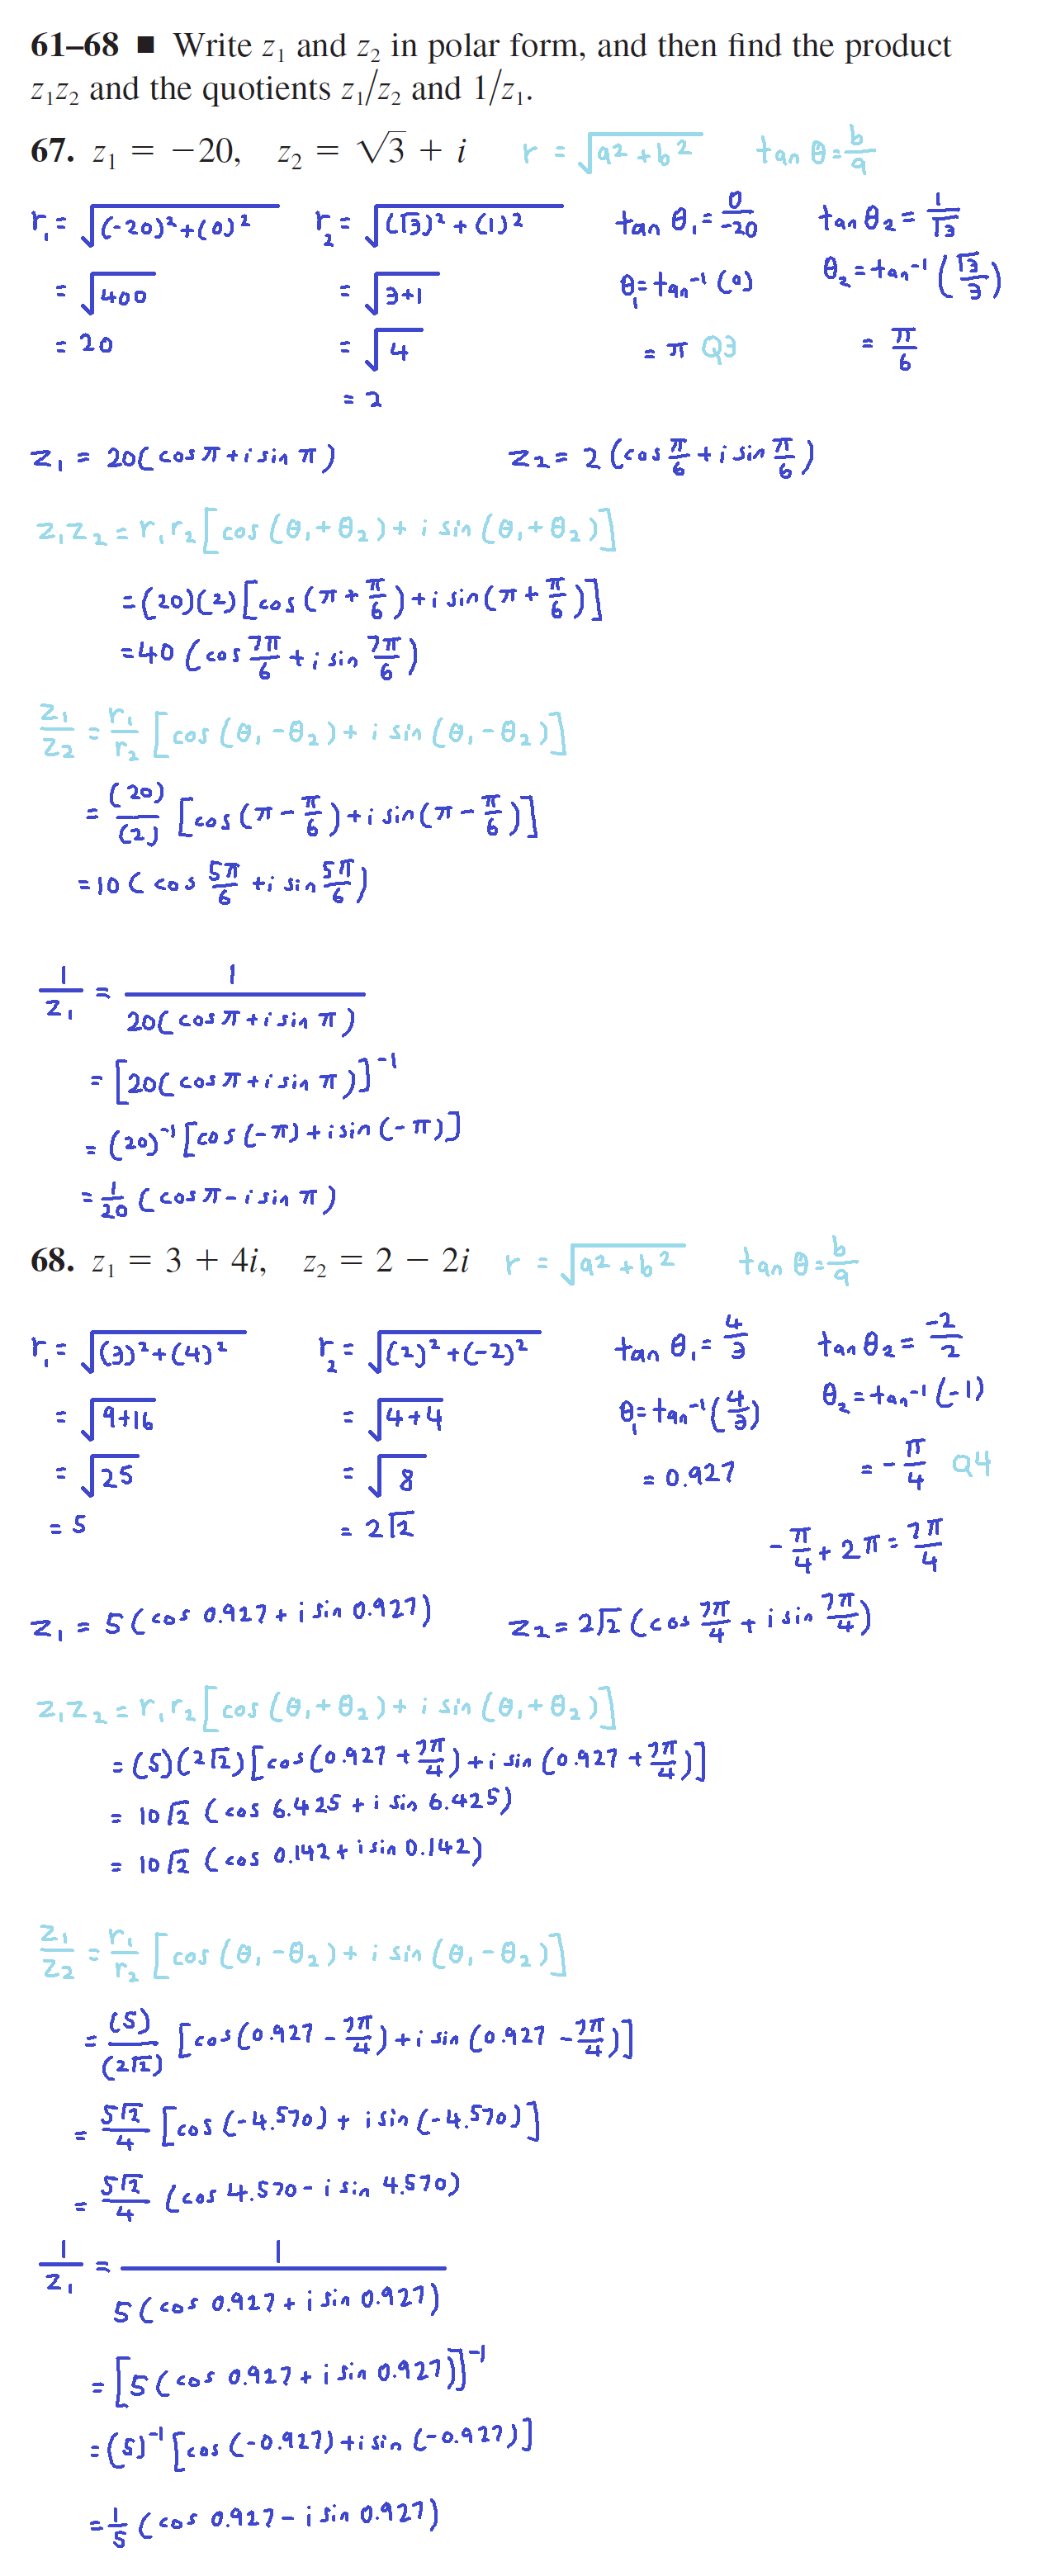 61–68 ■ Write z₁ and z₂ in polar form, and then find the product
z₁z₂ and the quotients z₁/z₂ and 1/z₁.
67. z₁ = −20, z₂ = √3 + i r = √(a² + b²) tan θ = b/a
r₁ = √((-20)² + (0)²) r₂ = √((√3)² + (1)²) tan θ₁ = 0/-20 tan θ₂ = 1/√3
= √400 = √(3+1) θ₁ = tan⁻¹(0) θ₂ = tan⁻¹(√3/3)
= 20 = √4 = π Q3 = π/6
= 2
z₁ = 20(cos π + i sin π) z₂ = 2(cos π/6 + i sin π/6)
z₁z₂ = r₁r₂[cos(θ₁+θ₂) + i sin(θ₁+θ₂)]
= (20)(2)[cos(π + π/6) + i sin(π + π/6)]
= 40(cos 7π/6 + i sin 7π/6)
z₁/z₂ = r₁/r₂ [cos(θ₁-θ₂) + i sin(θ₁-θ₂)]
= (20)/(2) [cos(π - π/6) + i sin(π - π/6)]
= 10(cos 5π/6 + i sin 5π/6)
1/z₁ = 1/20(cos π + i sin π)
= [20(cos π + i sin π)]⁻¹
= (20)⁻¹[cos(-π) + i sin(-π)]
= 1/20 (cos π - i sin π)
68. z₁ = 3 + 4i, z₂ = 2 − 2i r = √(a² + b²) tan θ = b/a
r₁ = √((3)² + (4)²) r₂ = √((2)² + (-2)²) tan θ₁ = 4/3 tan θ₂ = -2/2
= √(9+16) = √(4+4) θ₁ = tan⁻¹(4/3) θ₂ = tan⁻¹(-1)
= √25 = √8 = 0.927 = -π/4 Q4
= 5 = 2√2 -π/4 + 2π = 7π/4
z₁ = 5(cos 0.927 + i sin 0.927) z₂ = 2√2(cos 7π/4 + i sin 7π/4)
z₁z₂ = r₁r₂[cos(θ₁+θ₂) + i sin(θ₁+θ₂)]
= (5)(2√2)[cos(0.927 + 7π/4) + i sin(0.927 + 7π/4)]
= 10√2 (cos 6.425 + i sin 6.425)
= 10√2 (cos 0.142 + i sin 0.142)
z₁/z₂ = r₁/r₂ [cos(θ₁-θ₂) + i sin(θ₁-θ₂)]
= (5)/(2√2) [cos(0.927 - 7π/4) + i sin(0.927 - 7π/4)]
= 5√2/4 [cos(-4.570) + i sin(-4.570)]
= 5√2/4 (cos 4.570 - i sin 4.570)
1/z₁ = 1/5(cos 0.927 + i sin 0.927)
= [5(cos 0.927 + i sin 0.927)]⁻¹
= (5)⁻¹[cos(-0.927) + i sin(-0.927)]
= 1/5 (cos 0.927 - i sin 0.927)